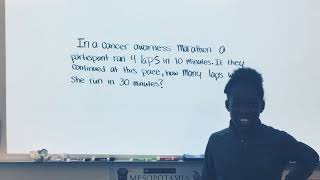 In a cancer awarness marathon a
participant ran 4 laps in 10 minutes. If they
continued at this pace, how many laps
she run in 30 minutes?
MESOPOTAMIA